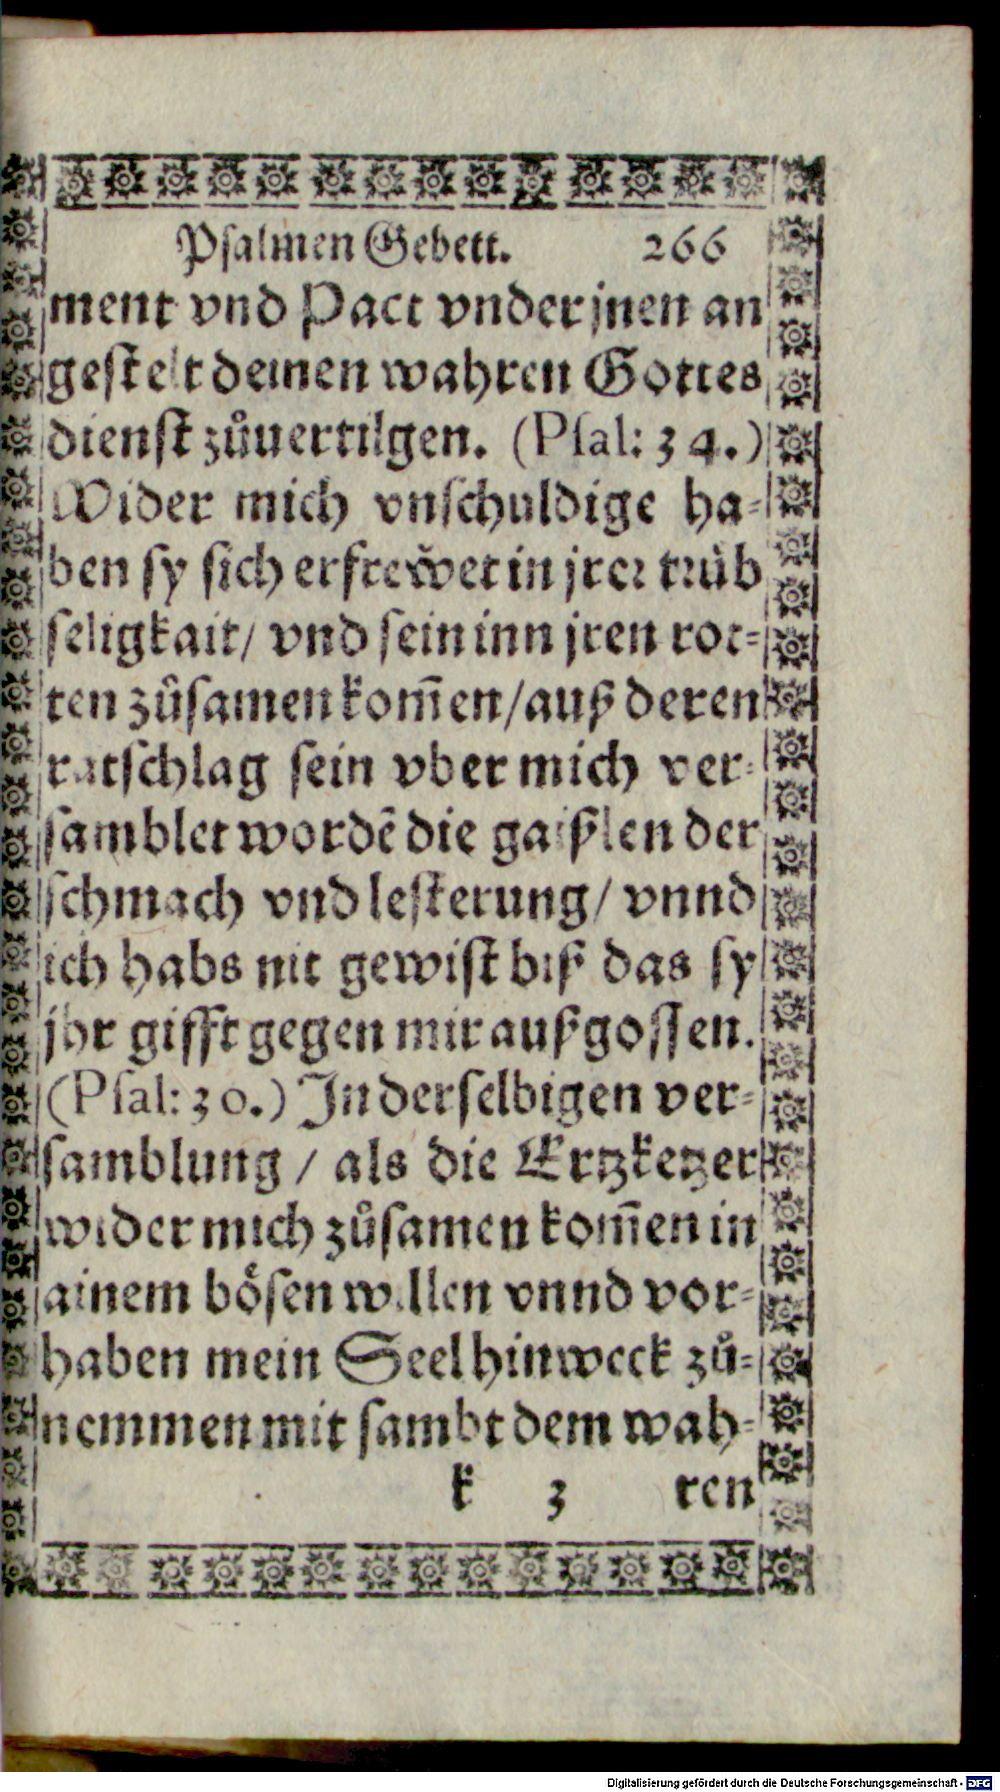 Psalmen Gebett. 266
ment vnd Pact vnder jnen an
gestelt deinen wahren Gottes
dienst zůuertilgen. (Psal: 34.)
Wider mich vnschuldige ha-
ben sy sich erfrewet in jrer trüb
seligkait/ vnd sein inn jren rot-
ten zůsamen kom̃en/auß deren
ratschlag sein vber mich ver-
samblet wordẽ die gaißlen der
schmach vnd lesterung/ vnnd
ich habs nit gewist biß das sy
jhr gifft gegen mir außgossen.
(Psal: 30.) In derselbigen ver-
samblung / als die Ertzketzer
wider mich zůsamen kom̃en in
ainem bösen willen vnnd vor-
haben mein Seel hinweck zů-
nemmen mit sambt dem wah-
k 3 ren
Digitalisierung gefördert durch die Deutsche Forschungsgemeinschaft - DFG